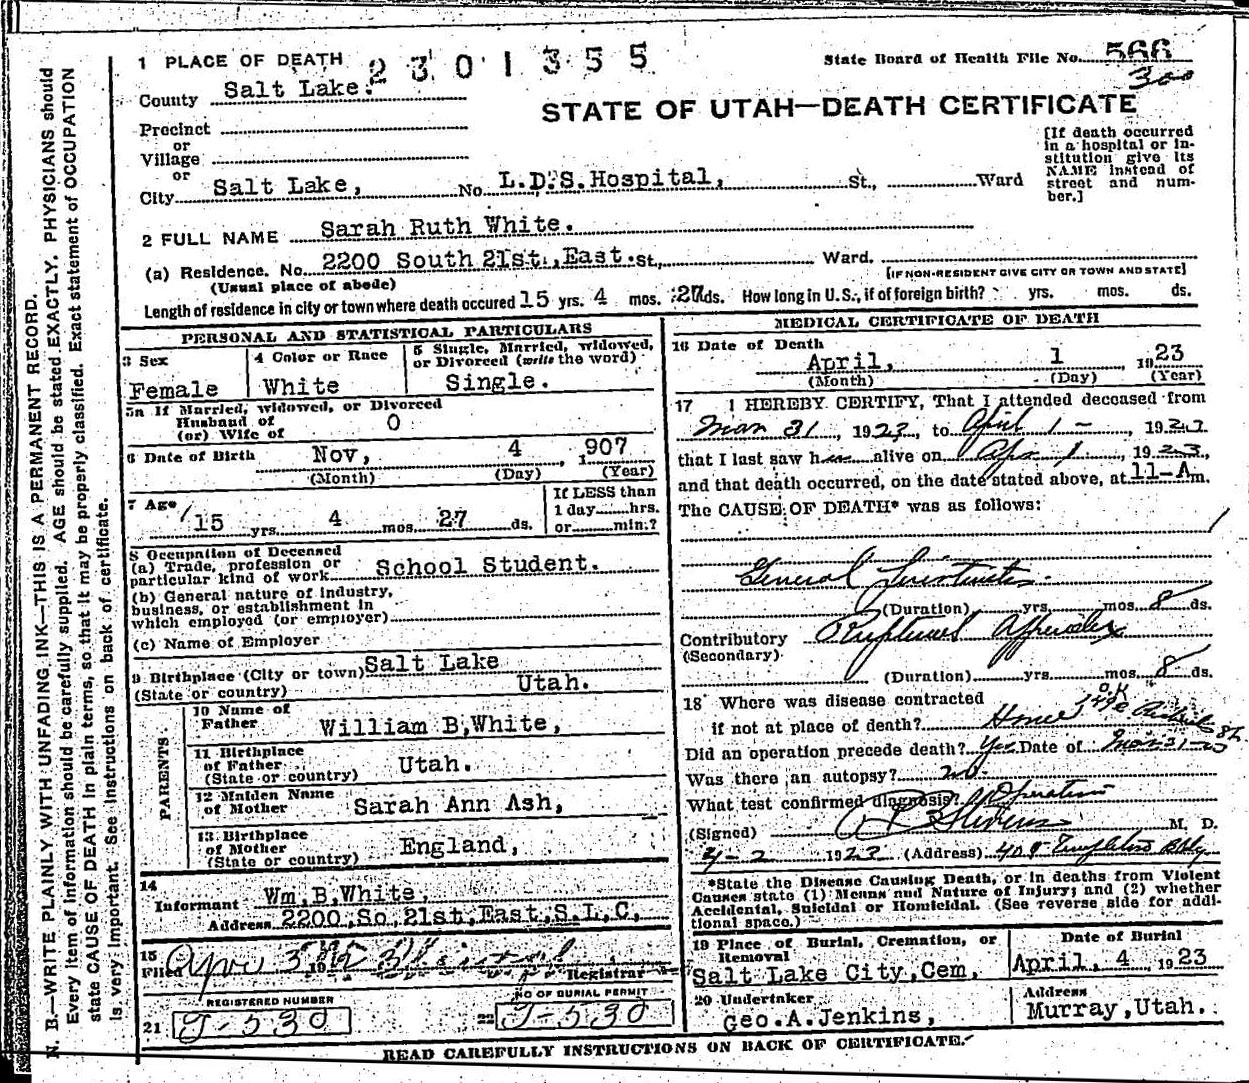 1 PLACE OF DEATH
2 3 0 1 3 5 5
State Board of Health File No. 566
300
County Salt Lake.
STATE OF UTAH—DEATH CERTIFICATE
Precinct
or
Village
or
City Salt Lake, No. L.D.S. Hospital, St., Ward
[If death occurred
in a hospital or in-
stitution give its
NAME instead of
street and num-
ber.]
2 FULL NAME Sarah Ruth White.
(a) Residence. No. 2200 South 21st., East. St., Ward.
(Usual place of abode)
[IF NON-RESIDENT GIVE CITY OR TOWN AND STATE]
Length of residence in city or town where death occured 15 yrs. 4 mos. 27 ds. How long in U. S., if of foreign birth? yrs. mos. ds.
PERSONAL AND STATISTICAL PARTICULARS
3 Sex
Female
4 Color or Race
White
5 Single, Married, widowed,
or Divorced (write the word)
Single.
5a If Married, widowed, or Divorced
Husband of
(or) Wife of
O
6 Date of Birth Nov, 4, 1907
(Month) (Day) (Year)
7 Age 15 yrs. 4 mos. 27 ds.
If LESS than
1 day......hrs.
or......min.?
8 Occupation of Deceased
(a) Trade, profession or
particular kind of work School Student.
(b) General nature of industry,
business, or establishment in
which employed (or employer)
(c) Name of Employer
9 Birthplace (City or town) Salt Lake
(State or country) Utah.
PARENTS
10 Name of
Father William B, White,
11 Birthplace
of Father
(State or country) Utah.
12 Maiden Name
of Mother Sarah Ann Ash,
13 Birthplace
of Mother
(State or country) England,
14
Informant Wm, B, White,
Address 2200, So, 21st, East, S, L, C,
15
Filed Apr 3 19
Registrar
REGISTERED NUMBER
21 J-530
NO OF BURIAL PERMIT
22 J-530
MEDICAL CERTIFICATE OF DEATH
16 Date of Death
April, 1, 1923
(Month) (Day) (Year)
17 I HEREBY CERTIFY, That I attended deceased from
Mar 31, 1923, to April 1 -, 1923
that I last saw her alive on Apr 1, 1923,
and that death occurred, on the date stated above, at 11-A m.
The CAUSE OF DEATH* was as follows:
General Peritonitis.
(Duration) yrs. mos. 8 ds.
Contributory Ruptured Appendix
(Secondary)
(Duration) yrs. mos. 8 ds.
18 Where was disease contracted
if not at place of death? Home
O.K.
Did an operation precede death? Yes Date of Mar 31-23
Was there an autopsy? no.
What test confirmed diagnosis? Operation
(Signed) Stevens M. D.
4-2 1923 (Address) 409 Templeton Bldg
*State the Disease Causing Death, or in deaths from Violent
Causes state (1) Means and Nature of Injury; and (2) whether
Accidental, Suicidal or Homicidal. (See reverse side for addi-
tional space.)
19 Place of Burial, Cremation, or
Removal
Salt Lake City, Cem,
Date of Burial
April, 4 1923
20 Undertaker
Geo. A. Jenkins,
Address
Murray, Utah.
READ CAREFULLY INSTRUCTIONS ON BACK OF CERTIFICATE.
N. B.—WRITE PLAINLY WITH UNFADING INK—THIS IS A PERMANENT RECORD.
Every item of information should be carefully supplied. AGE should be stated EXACTLY. PHYSICIANS should
state CAUSE OF DEATH in plain terms, so that it may be properly classified. Exact statement of OCCUPATION
is very important. See instructions on back of certificate.